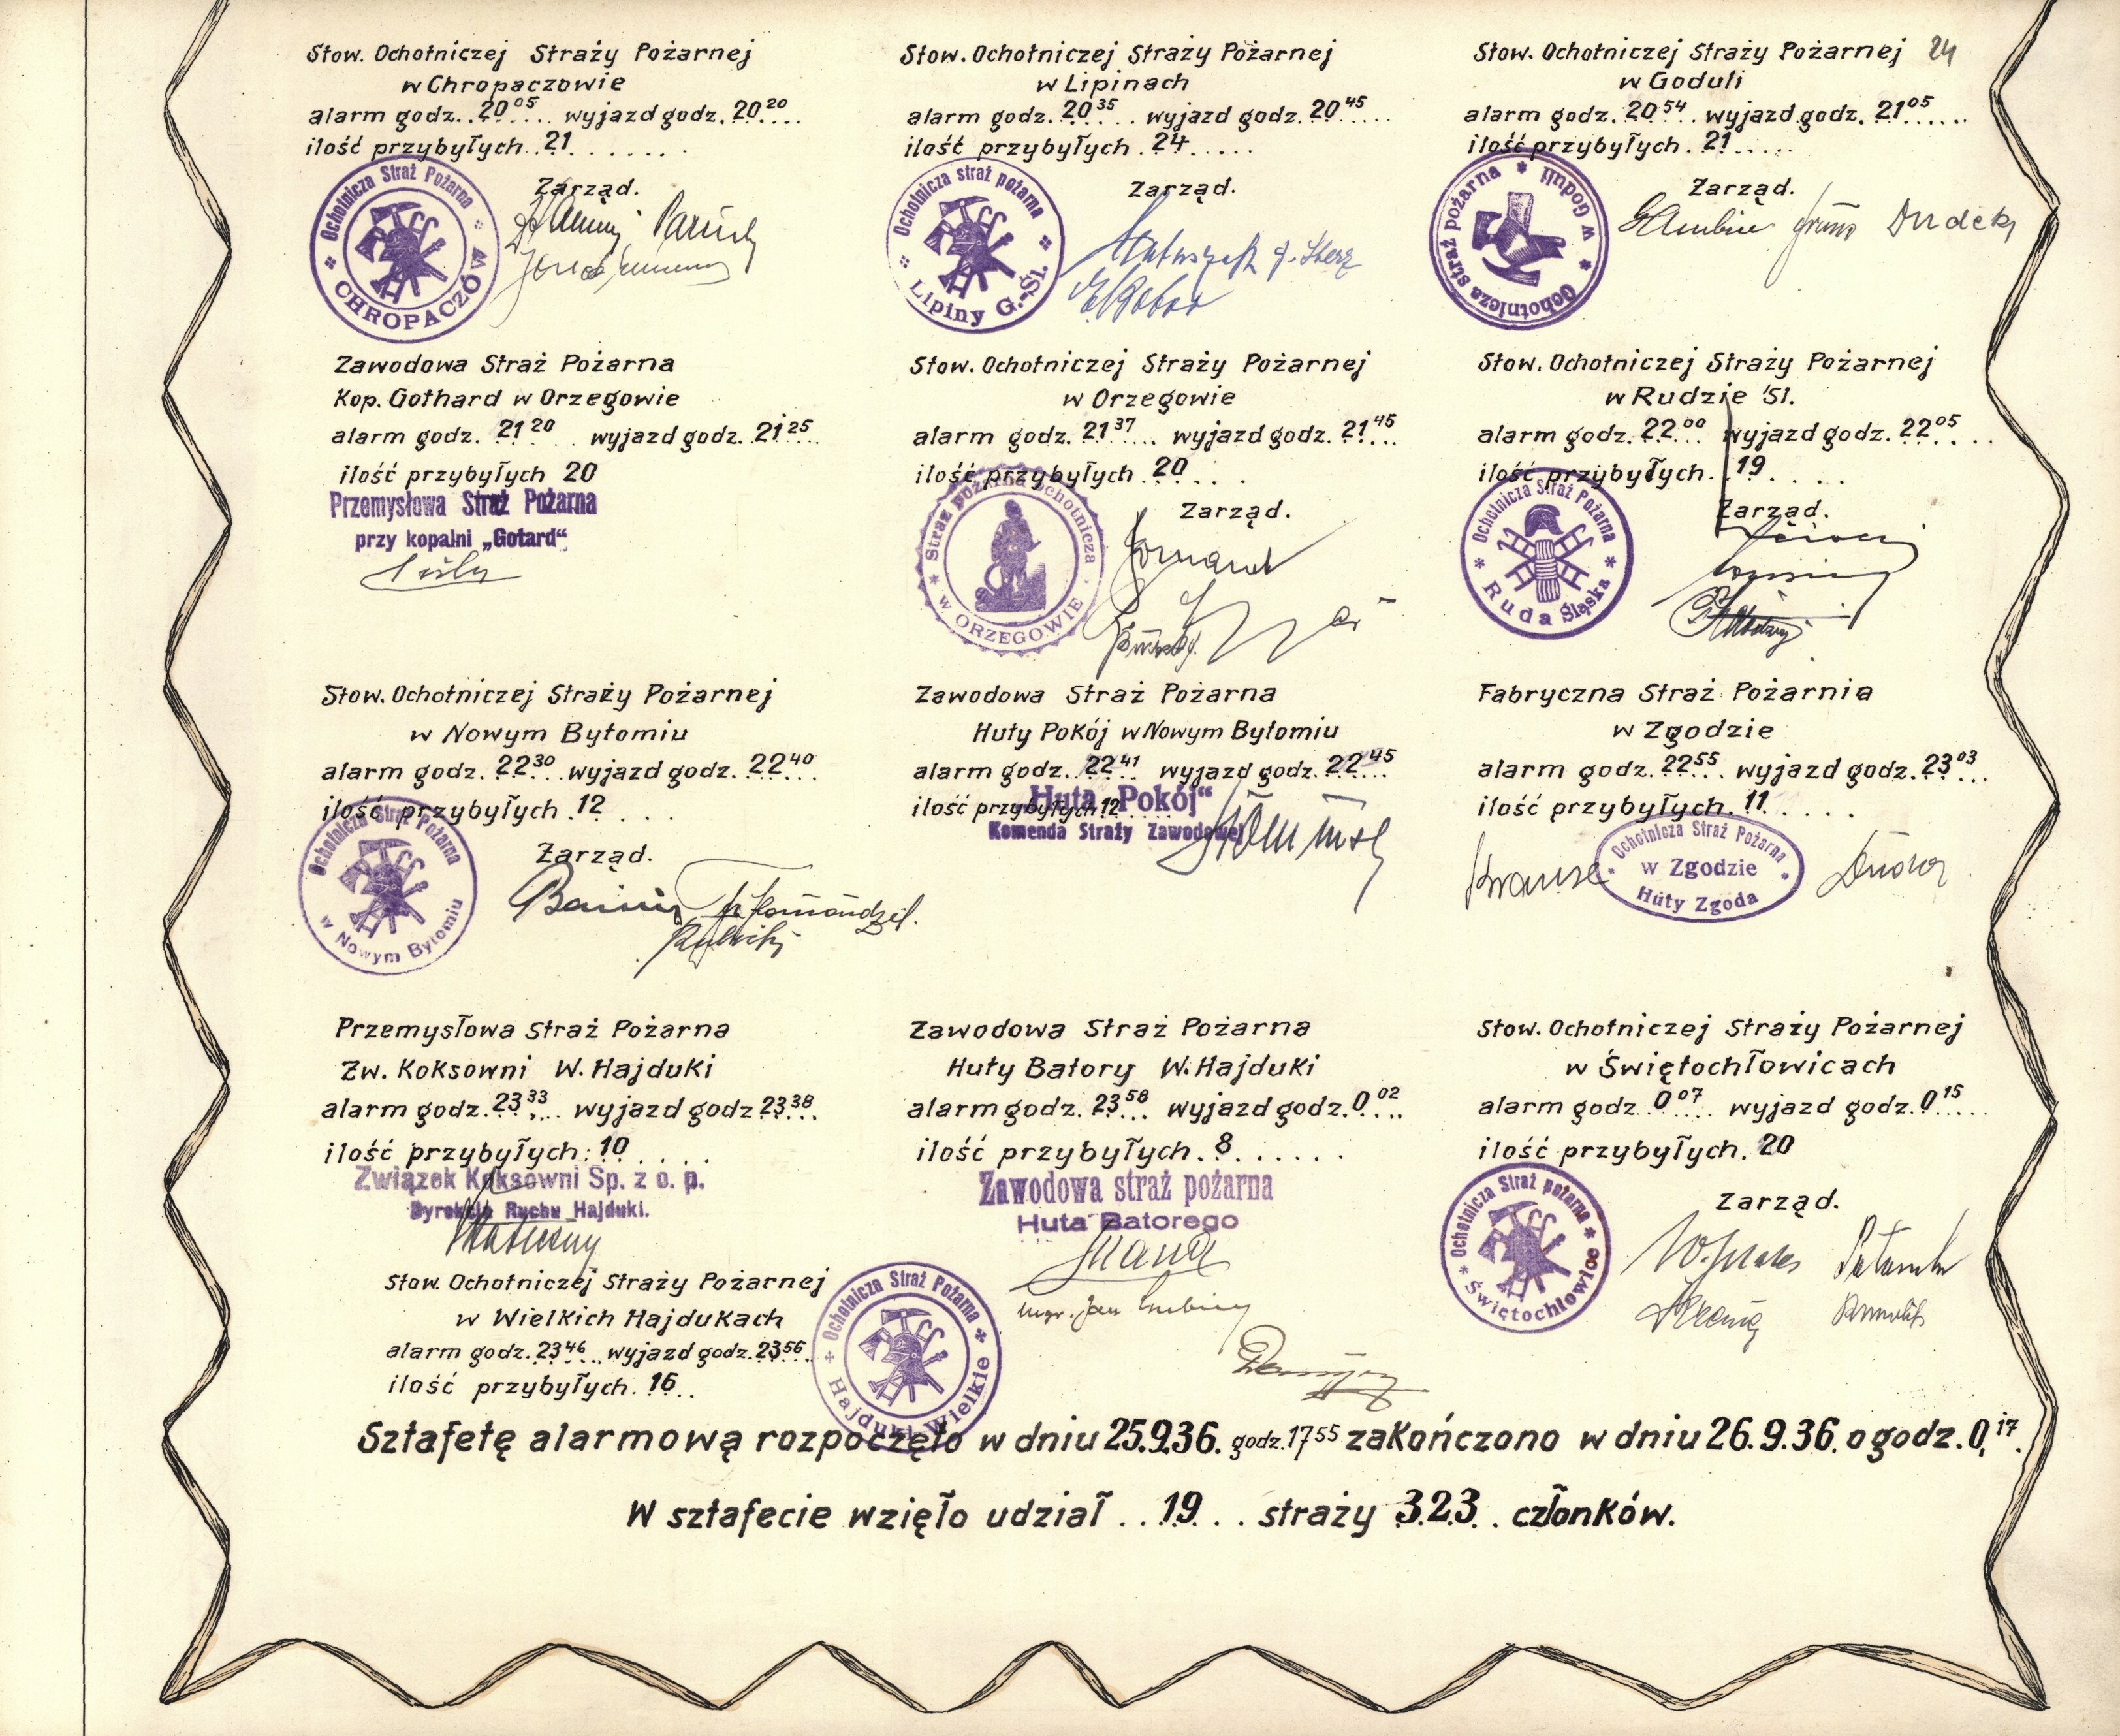 24
Stow. Ochotniczej Straży Pożarnej
w Chropaczowie
alarm godz. 20 05 wyjazd godz. 20 20
ilość przybyłych 21
Zarząd.
Ochotnicza Straż Pożarna
CHROPACZÓW
Stow. Ochotniczej Straży Pożarnej
w Lipinach
alarm godz. 20 35 wyjazd godz. 20 45
ilość przybyłych 24
Zarząd.
Ochotnicza straż pożarna
Lipiny G.-Śl.
Stow. Ochotniczej Straży Pożarnej
w Goduli
alarm godz. 20 54 wyjazd godz. 21 05
ilość przybyłych 21
Zarząd.
Dudek
Ochotnicza straż pożarna
w Goduli
Zawodowa Straż Pożarna
Kop. Gothard w Orzegowie
alarm godz. 21 20 wyjazd godz. 21 25
ilość przybyłych 20
Przemysłowa Straż Pożarna
przy kopalni „Gotard“
Stow. Ochotniczej Straży Pożarnej
w Orzegowie
alarm godz. 21 37 wyjazd godz. 21 45
ilość przybyłych 20
Zarząd.
Straż pożarna ochotnicza
w ORZEGOWIE
Stow. Ochotniczej Straży Pożarnej
w Rudzie Śl.
alarm godz. 22 00 wyjazd godz. 22 05
ilość przybyłych 19
Zarząd.
Ochotnicza Straż Pożarna
Ruda Śląska
Stow. Ochotniczej Straży Pożarnej
w Nowym Bytomiu
alarm godz. 22 30 wyjazd godz. 22 40
ilość przybyłych 12
Zarząd.
Ochotnicza Straż Pożarna
w Nowym Bytomiu
Zawodowa Straż Pożarna
Huty Pokój w Nowym Bytomiu
alarm godz. 22 41 wyjazd godz. 22 45
ilość przybyłych 12
Huta „Pokój“
Komenda Straży Zawodowej
Fabryczna Straż Pożarnia
w Zgodzie
alarm godz. 22 55 wyjazd godz. 23 03
ilość przybyłych 11
Krause
Ochotnicza Straż Pożarna
w Zgodzie
Huty Zgoda
Przemysłowa Straż Pożarna
Zw. Koksowni W. Hajduki
alarm godz. 23 33 wyjazd godz 23 38
ilość przybyłych: 10
Związek Koksowni Sp. z o. p.
Dyrekcja Ruchu Hajduki.
Zawodowa Straż Pożarna
Huty Batory W. Hajduki
alarm godz. 23 58 wyjazd godz. 0 02
ilość przybyłych 8
Zawodowa straż pożarna
Huta Batorego
Stow. Ochotniczej Straży Pożarnej
w Świętochłowicach
alarm godz. 0 07 wyjazd godz. 0 15
ilość przybyłych. 20
Zarząd.
Ochotnicza Straż pożarna
Świętochłowice
Stow. Ochotniczej Straży Pożarnej
w Wielkich Hajdukach
alarm godz. 23 46 wyjazd godz. 23 56
ilość przybyłych 16
Ochotnicza Straż Pożarna
Hajduki Wielkie
Sztafetę alarmową rozpoczęto w dniu 25.9.36. godz. 17 55 zakończono w dniu 26.9.36. o godz. 0, 17
W sztafecie wzięło udział 19 straży 323 członków.